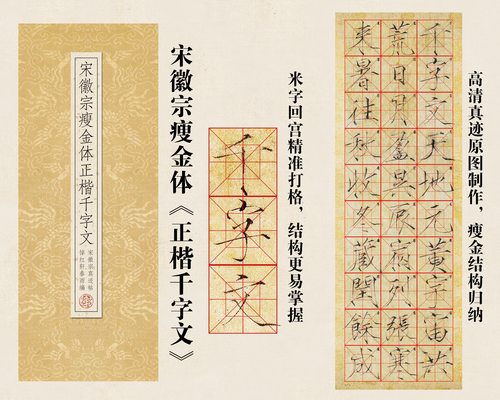 宋徽宗瘦金体正楷千字文
宋徽宗真迹帖
宋徽宗瘦金体《正楷千字文》
千字文
米字回宫精准打格，结构更易掌握
千字文天地元黄宇宙洪
荒日月盈昃辰宿列張寒
來暑往秋收冬藏閏餘成
高清真迹原图制作，瘦金结构归纳